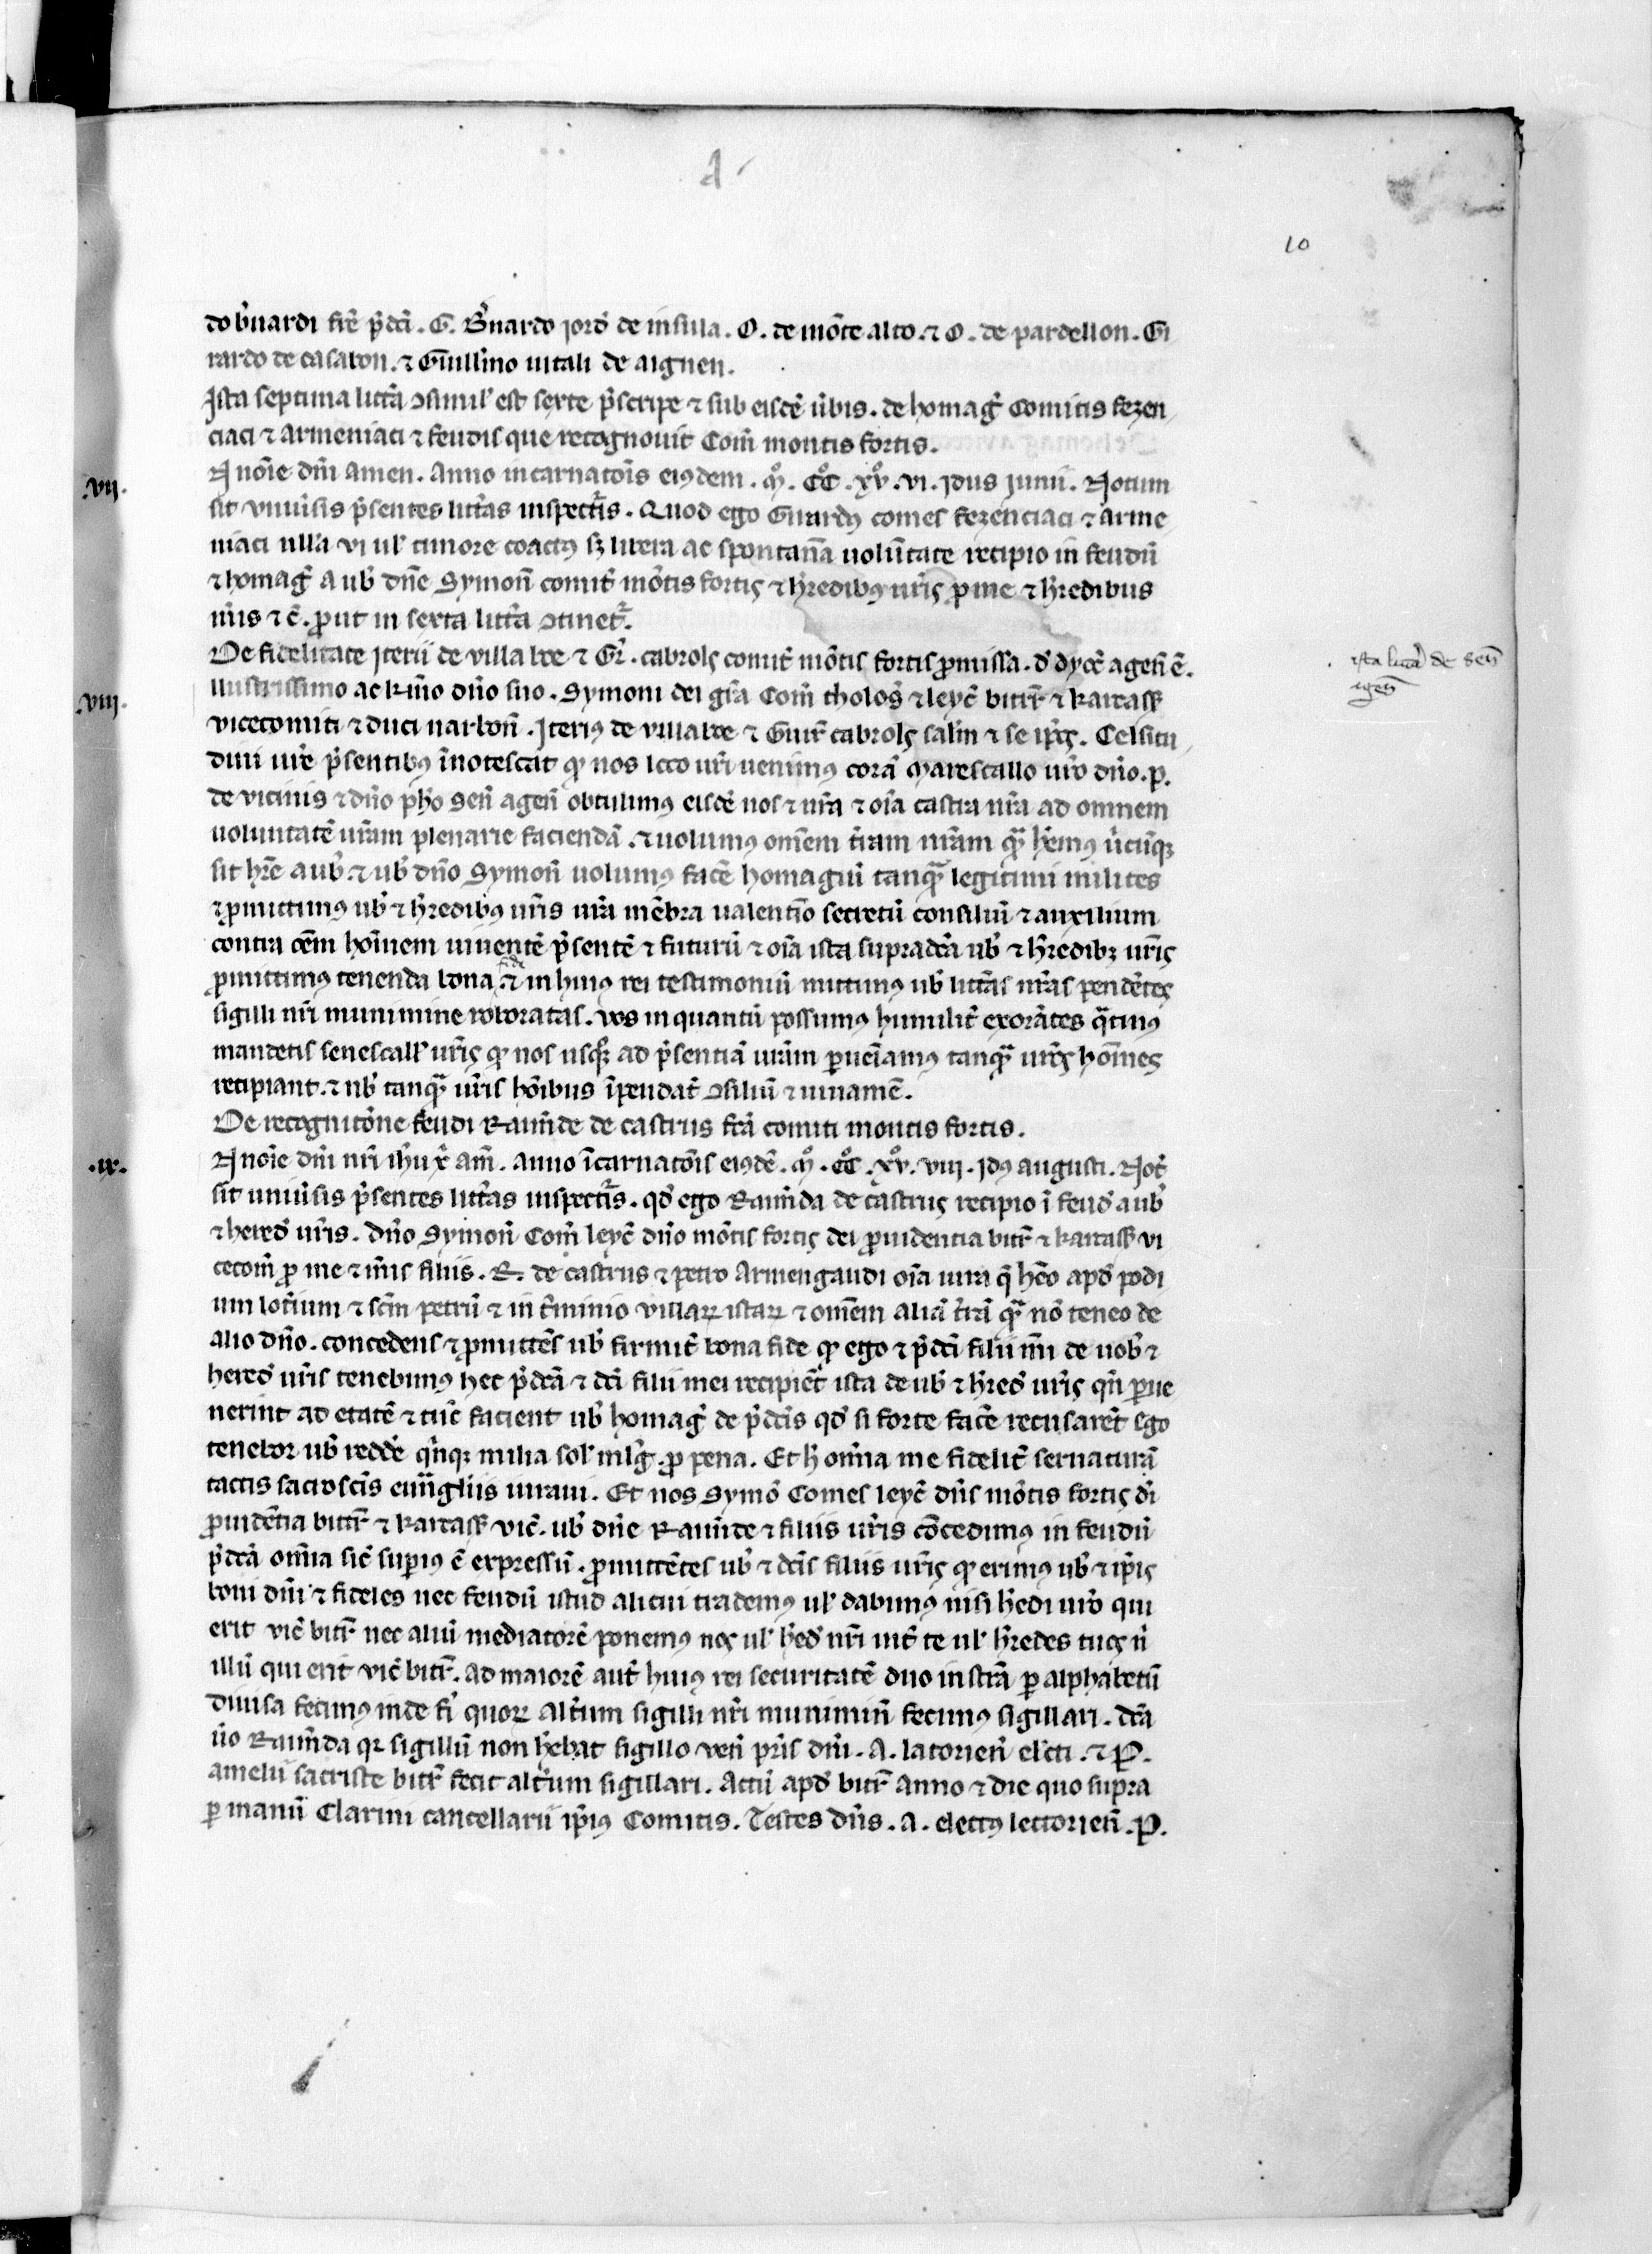 A
10
do b̄nardi fr̄e p̄dc̄i . G. B̄nardo jord̄ de insula . O. de mōte alto . ⁊ O . de pardellon . Gi
rardo de casalon . ⁊ Guill̄mo uitali de aignen .
Ista septima litt̄a ꝯsimil' est sexte p̄scripte ⁊ sub eisdē ūbis . de homaḡ Comitis fezen
ciaci ⁊ armeniaci ⁊ feudis que recognouit Com̄ montis fortis .
.vii.
N noīe dn̄i amen . Anno incarnatōis eiꝰdem . mͦ . ccͦ . xvͦ . vi . idus junii . Notum
sit vniūsis p̄sentes litt̄as inspectr̄is . Quod ego Guirardꝰ comes fezenciaci ⁊ arme
niaci nulla vi ul' timore coactꝰ sꝫ libera ac spontanā uolūntate recipio in feudū
⁊ homaḡ a uob̄ dn̄e Symon̄ comit̄ mōtis fortis ⁊ h̄redibꝰ ur̄is ꝓ me ⁊ h̄redibus
m̄is ⁊ c̄ . ꝓut in sexta litt̄a ꝯtinet̄ .
De fidelitate Iterii de villa bōe ⁊ Gr̄ . cabrols comit̄ mōtis fortis ꝓmissa . d̄ dyoc̄ agen̄ ē .
ista litt̄a de sen̄
agen̄
.viii.
llustrissimo ac kmō dn̄o suo . Symoni dei gr̄a Com̄ tholos̄ ⁊ leyc̄ bitr̄ ⁊ karcass̄
vicecomiti ⁊ duci narbon̄ . Iteriꝰ de villabōe ⁊ Guir̄ cabrols sal̄m ⁊ se ip̄os . Celsitu
dini ur̄e p̄sentibꝰ īnotescat qꝫ nos loco ur̄i uenimꝰ corā marescallo ur̄o dn̄o . p.
de vicinis ⁊ dn̄o ph̄o sen̄ agen̄ obtulimꝰ eisdē nos ⁊ nr̄a ⁊ oīa castra nr̄a ad omnem
uoluntatē ur̄am plenarie faciendā . ⁊ uolumꝰ om̄em t̄ram nr̄am qꝫ h̄emꝰ ūcūqꝫ
sit hr̄e a uob̄ . ⁊ uob̄ dn̄o Symon̄ uolumꝰ facē homagiū tanqꝫ legitimi milites
⁊ ꝓmittimꝰ uob̄ ⁊ h̄redibꝰ ur̄is ur̄a mēbra ualentīo secretū consiliū ⁊ auxilium
contra oēm hoīnem uiuentē p̄sentē ⁊ futurū ⁊ oīa ista supradc̄a uob̄ ⁊ h̄redibꝫ ur̄is
ꝓmittimꝰ tenenda bona fide ⁊ in huiꝰ rei testimoniū mittimꝰ uob̄ litt̄as nr̄as pendētes
sigilli nr̄i munimine roboratas . vos in quantū possumꝰ humilit̄ exorātes qꝫtinꝰ
mandetis senescall' ur̄is qꝫ nos usqꝫ ad p̄sentiā ur̄am ꝑueniamꝰ tanqꝫ ur̄os hoīnes
recipiant . ⁊ nob̄ tanqꝫ ur̄is hoībus īpendāt ꝯsiliū ⁊ iuuamē .
De recognitōne feudi Raim̄de de castrus fc̄a comiti montis fortis .
.ix.
N noīe dn̄i nr̄i ih̄u xp̄i am̄ . Anno īcarnatōis eiꝰdē . mͦ . ccͦ . xvͦ . viii . idꝰ augusti . Not̄
sit uniūsis p̄sentes litt̄as inspectr̄is . qd̄ ego Raim̄da de castrus recipio ī feud̄ a uob̄
⁊ hered̄ ur̄is . dn̄o Symon̄ Com̄ leyc̄ dn̄o mōtis fortis dei ꝓuidentia bitr̄ ⁊ karcass̄ vi
cecom̄ ꝓ me ⁊ m̄is filiis . R. de castrus ⁊ petro Armengaudi oīa iura q̄ h̄eo apd̄ podi
um lot̄ium ⁊ sc̄m petrū ⁊ in t̄minio villaꝝ istaꝝ ⁊ om̄em aliā t̄rā qꝫ nō teneo de
alio dn̄o . concedens ⁊ ꝓmittēs uob̄ firmit̄ bona fide qꝫ ego ⁊ p̄dc̄i filii m̄i de uob̄ ⁊
hered̄ ur̄is tenebimꝰ hec p̄dc̄a ⁊ dc̄i filii mei recipiēt ista de uob̄ ⁊ h̄red̄ ur̄is qn̄ ꝑue
nerint ad etatē ⁊ tūc facient uob̄ homaḡ de p̄dc̄is qd̄ si forte facē recusarēt ego
teneor uob̄ reddē qn̄qꝫ milia sol' mlḡ . ꝓ pena . Et h̄ om̄ia me fidelit̄ seruaturā
tactis sacrosc̄is euu̅gliis iuraui . Et nos Symō Comes leyc̄ dn̄s mōtis fortis di̅
ꝓuidētia bitr̄ ⁊ karcass̄ vic̄ . uob̄ dn̄e Raim̄de ⁊ filiis ur̄is cōcedimꝰ in feudū
p̄dc̄a om̄ia sic̄ supius ē expressū . ꝓmittētes uob̄ ⁊ dc̄is filiis ur̄is qꝫ erimꝰ uob̄ ⁊ ip̄is
boni dn̄i ⁊ fideles nec feudū istud alicui trademꝰ ul' dabimꝰ nisi h̄edi nr̄o qui
erit vic̄ bitr̄ nec aliū mediatorē ponemꝰ nos ul' h̄ed̄ nr̄i int̄ te ul' h̄redes tuos n̄
illū qui erit vic̄ bitr̄ . ad maiorē aut̄ huiꝰ rei securitatē duo instr̄a ꝑ alphabetū
diuisa fecimꝰ inde fi̅ quoꝝ alt̄um sigilli nr̄i munimin̄ fecimꝰ sigillari . dc̄a
ūo Raim̄da qꝛ sigillū non h̄ebat sigillo ven̄ pr̄is dn̄i . A. latorien̄ elc̄ti . ⁊ P.
amelii sacriste bitr̄ fecit alt̄um sigillari . Actū apd̄ bitr̄ anno ⁊ die quo supra
ꝑ manū Clarini cancellarii ip̄iꝰ Comitis . Testes dn̄s . A . electꝰ lectorien̄ . P.